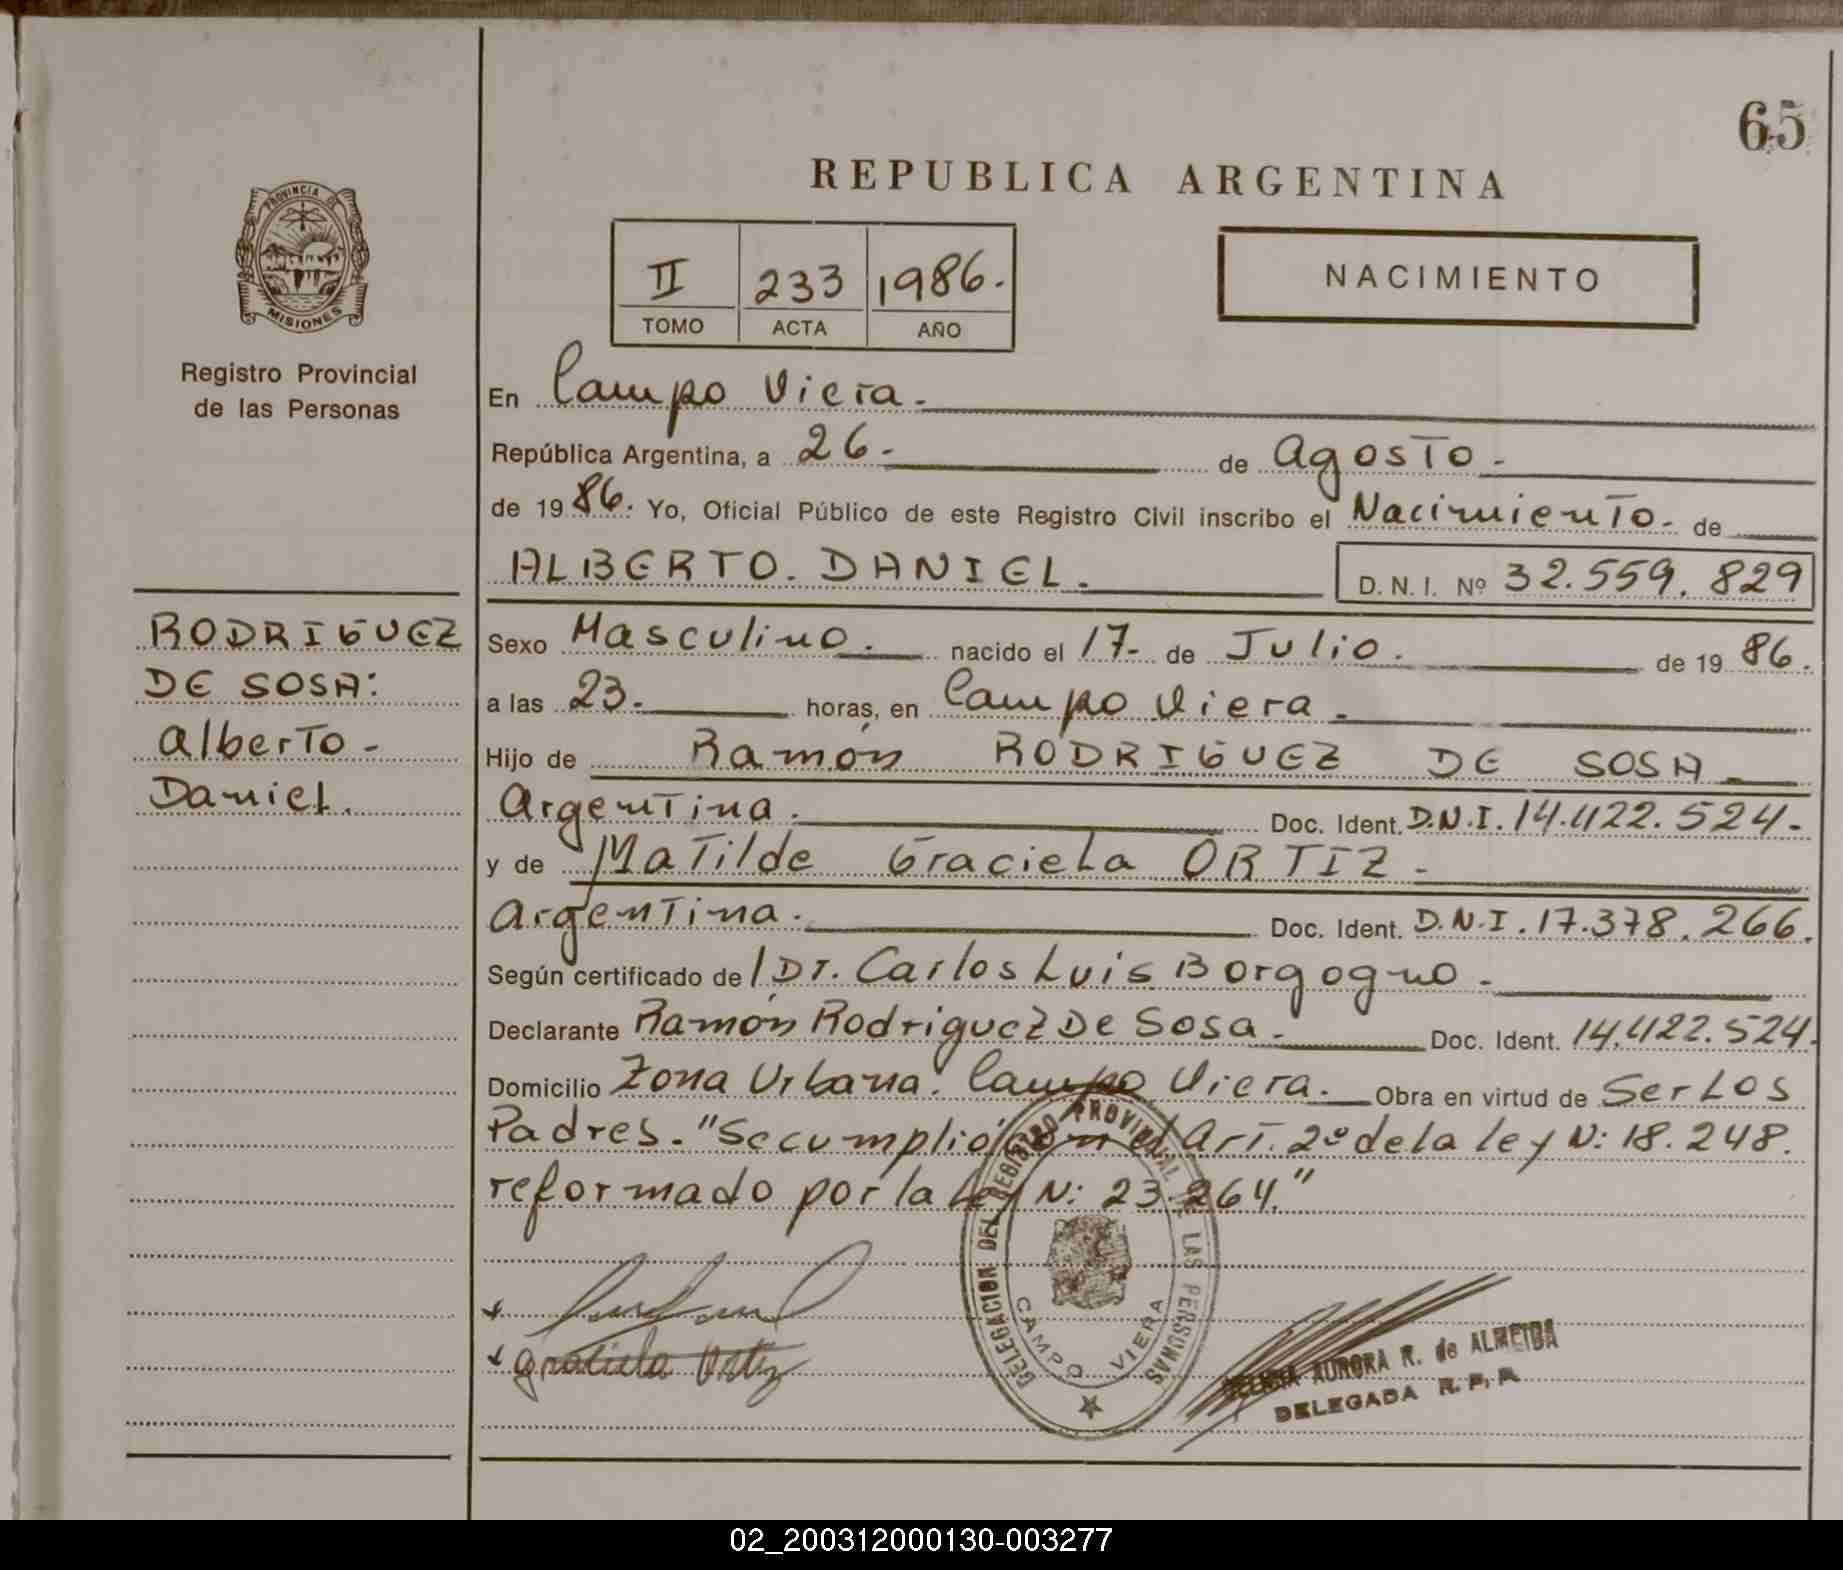 65
REPUBLICA ARGENTINA
PROVINCIA DE
MISIONES
Registro Provincial
de las Personas
II 233 1986.
TOMO ACTA AÑO
NACIMIENTO
En Campo Viera.
República Argentina, a 26. de Agosto.
de 1986. Yo, Oficial Público de este Registro Civil inscribo el Nacimiento. de
ALBERTO. DANIEL. D. N. I. Nº 32.559.829
RODRIGUEZ
DE SOSA:
Alberto-
Daniel.
Sexo Masculino. nacido el 17. de Julio. de 1986.
a las 23. horas, en Campo Viera.
Hijo de Ramón RODRIGUEZ DE SOSA
Argentina. Doc. Ident. D.N.I. 14.422.524.
y de Matilde Graciela ORTIZ.
Argentina. Doc. Ident. D.N.I. 17.378.266.
Según certificado de Dr. Carlos Luis Borgogno.
Declarante Ramón Rodriguez De Sosa. Doc. Ident. 14.422.524.
Domicilio Zona Urbana. Campo Viera. Obra en virtud de Ser Los
Padres. "Se cumplió con el Art. 2º de la ley N: 18.248.
reformado por la Ley N: 23.264."
DELEGACION DEL REGISTRO PROVINCIAL DE LAS PERSONAS
CAMPO VIERA
Graciela Ortiz
AURORA R. de ALMEIDA
DELEGADA R. P. P.
02_200312000130-003277